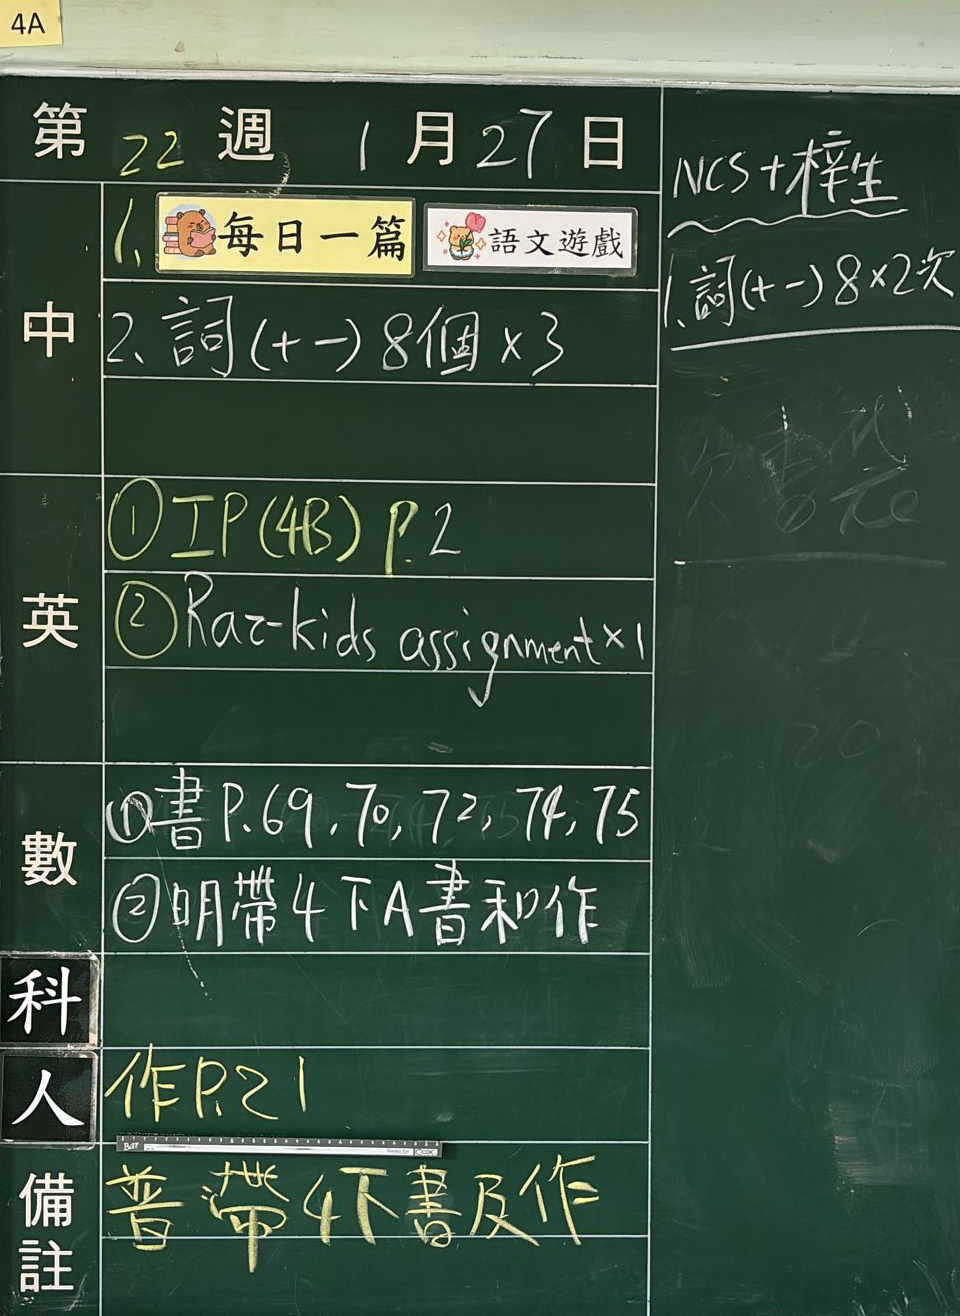 4A
第 22 週 1 月 27 日
中
1. 每日一篇 語文遊戲
2. 詞(十一) 8個 x 3
英
① IP (4B) P.2
② Raz-kids assignment x 1
數
① 書 P. 69, 70, 72, 74, 75
② 明帶4下A書和作
科
人
作P.21
Bar
COX
備註
普 帶4下書及作
NCS + 梓生
1. 詞(十一) 8 x 2次
20